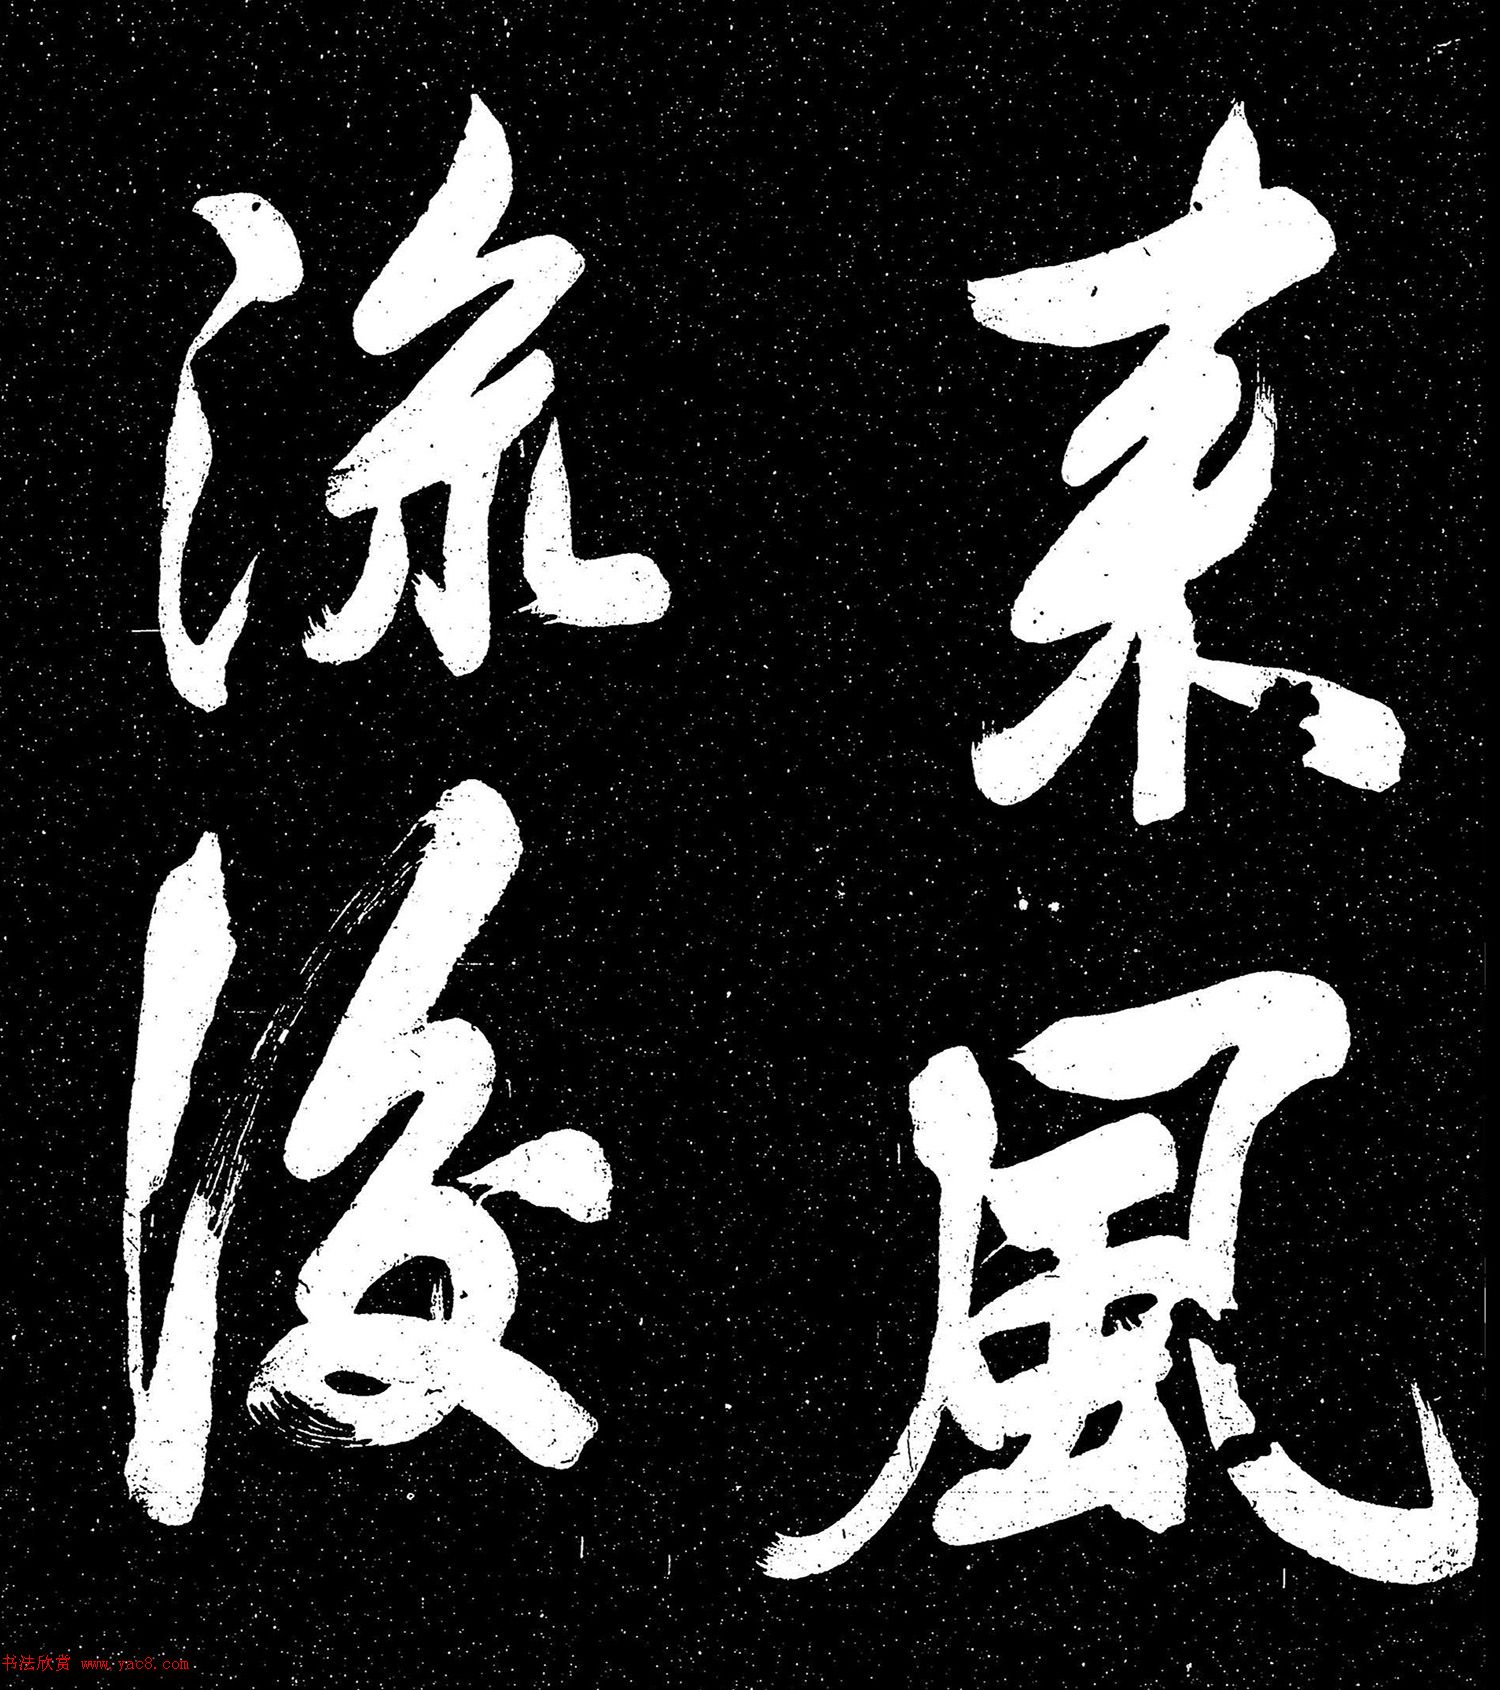 来風
流後
书法欣赏 www.yac8.com